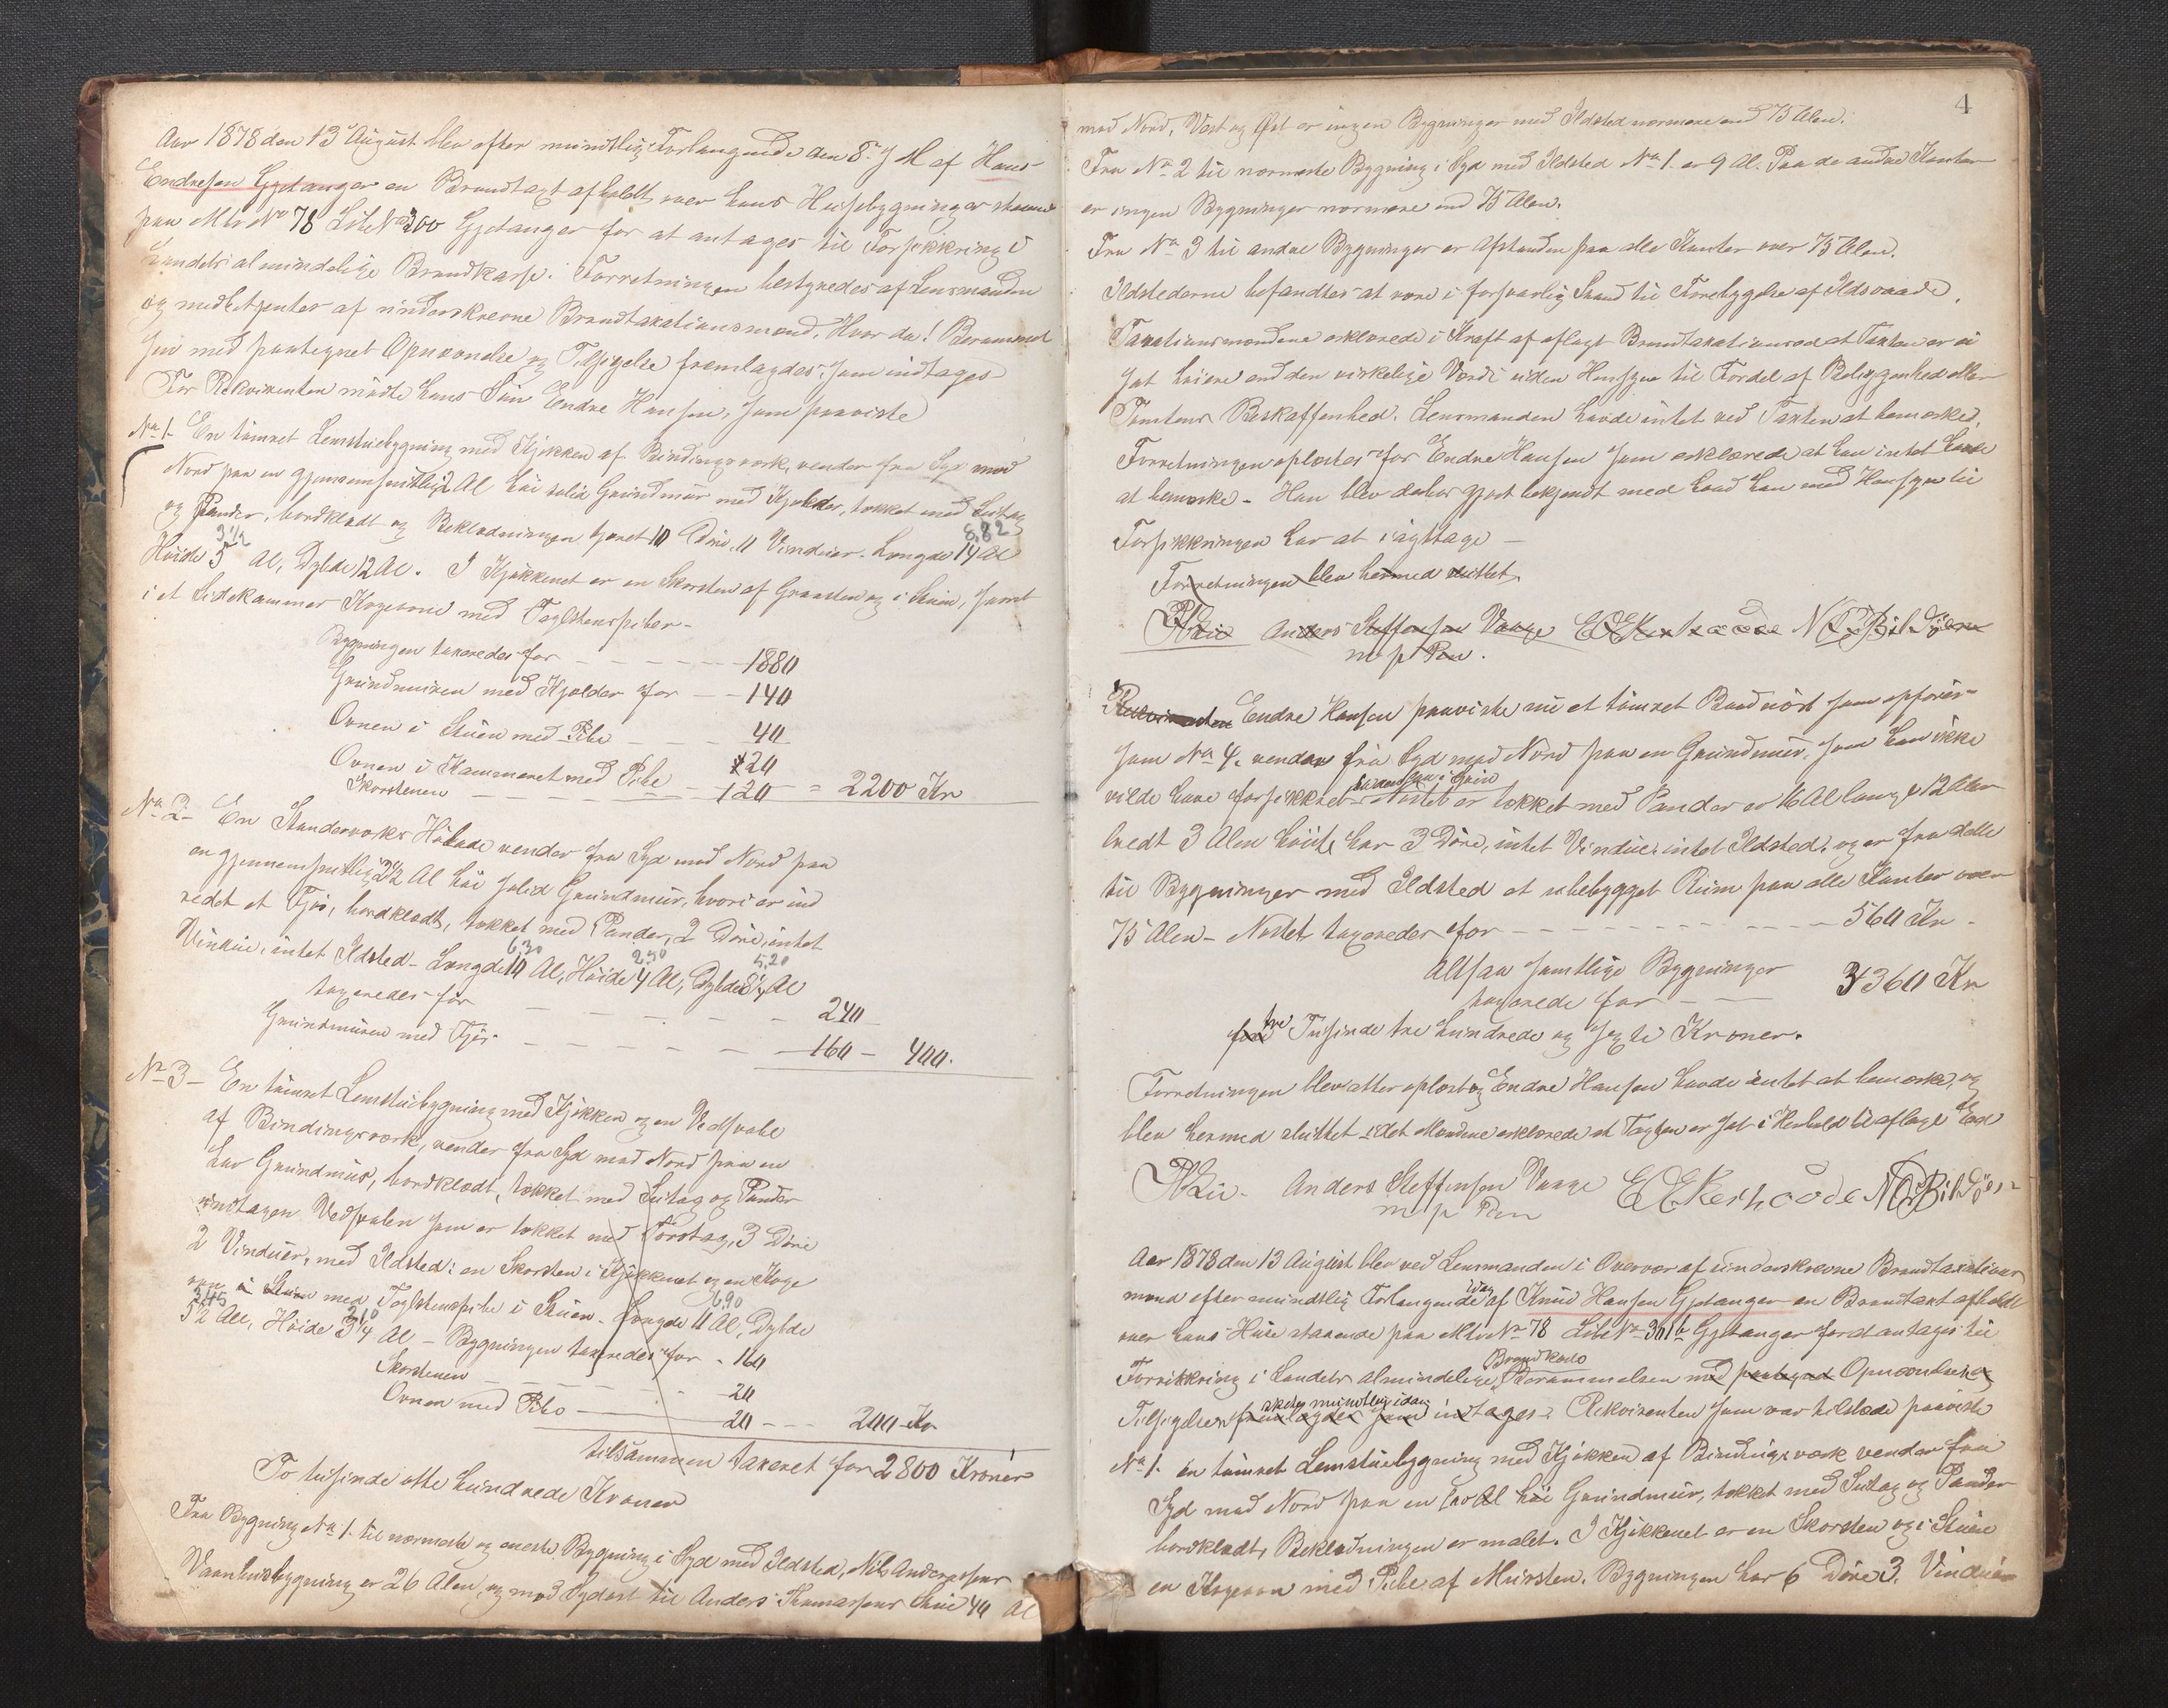 Aar 1878 den 13 August blev efter mundtlig Forlangende den 8. d. M. af Hans
Endresen Gjetanger en Brandtaxt afholdt over hans Huusebygninger staaende
paa Mtr No 78 Lbk No 300 Gjetanger for at antages til Forsikkring i
Landets almindelige Brandkasse. Forretningen bestyredes af Lensmanden
og medbetjentes af underskrevne Brandtaxationsmænd. Hvor da! Berammel
sen med paategnet Opnævnelse og Tilsigelse fremlagdes, som indtages
For Rekvirenten mødte hans Søn Endre Hansen, som paaviste
No 1- En tømret Lemstuebygning med Kjøkken af Bindingsværk, vender fra Syd mod
Nord paa en gjennemsnitlig 2 Al høi solid Grundmur med Kjelder, tækket med Sutag
og Pander, bordklædt og Beklædningen tjæret 10 Døre, 11 Vinduer. Længde 14 Al
8,82
3 1/2
Høide 5 Al, Dybde 12 Al. I Kjøkkenet er en Skorsten af Graasten og i Stuen, samt
i et Sidekammer Kogeovne med Teglstenspiber-
Bygningen taxeredes for 1880
Grundmuren med Kjelder for 140
Ovnen i Stuen med Pibe 40
Ovnen i Kammeret med Pibe 20
Skorstenen 120 = 2200 Kr
No 2- En Stavværks Hølade vender fra Syd mod Nord paa
en gjennemsnitlig 2 1/2 Al høi solid Grundmur, hvori er ind
redet et Fjøs, bordklædt, tækket med Pander, 2 Døre, intet
Vindue, intet Ildsted- Længde 10 Al, Høide 4 Al, Dybde 8 1/4 Al
6,30 2,50 5,20
taxeredes for 240
Grundmuren med Fjøs 160 - 400.
No 3- En tømret Lemstuebygning med Kjøkken og en Vedsvale
af Bindingsværk, vender fra Syd mod Nord paa en
lav Grundmur, bordklædt, tækket med Sutag og Pander
undtagen Vedsvalen som er tækket med Torvtag, 3 Døre
2 Vinduer, med Ildsted: en Skorsten i Kjøkkenet og en Koge
ovn i Stuen med Teglstenspibe i Stuen- Længde 11 Al, Dybde
3,45 2,10 6,90
5 1/2 Al, Høide 3 1/4 Al - Bygningen taxeredes for - 160
Skorstenen 20
Ovnen med Pibe 20 - 200 Kr
tilsammen taxeret for 2800 Kroner
To tusinde otte hundrede Kroner
Fra Bygning No 1. til nærmeste og eneste Bygning i Syd med Ildsted, Nils Andersens
Vaanhusbygning er 26 Alen, og mod Sydost til Anders Thomassens Stue 40 Al
4
mod Nord, Vest og Øst er ingen Bygninger med Ildsted nærmere end 75 Alen.
Fra No 2 til nærmeste Bygning i Syd med Ildsted No 1. er 9 Al. Paa de andre Kanter
er ingen Bygninger nærmere end 75 Alen.
Fra No 3 til andre Bygninger er Afstanden paa alle Kanter over 75 Alen.
Ildstederne befandtes at være i forsvarlig Stand til Forebyggelse af Ildsvaade.
Taxationsmændene erklærede i Kraft af aflagt Brandtaxationsed at Taxten er ei
sat høiere end den virkelige Værdi uden Hensyn til Fordel af Beliggenhed eller
Tomtens Beskaffenhed. Lensmanden havde intet ved Taxten at bemærke.
Forretningen oplæstes for Endre Hansen som erklærede at han intet havde
at bemærke- Han blev derhos gjort bekjendt med hvad han med Hensyn til
Forsikkringen har at iagttage-
Forretningen blev hermed sluttet.
Anders Steffensen Vaage
m p Pen.
Rekvirenten Endre Hansen paaviste nu et tømret Baadnøst som opføres
som No 4. vender fra Syd mod Nord paa en Grundmur, som han ikke
vilde have forsikkret- Nøstet er tækket med Pander er 16 Al lang, 12 Alen
bredt 3 Alen høit, har 3 Døre, intet Vindue, intet Ildsted, og er fra dette
til Bygninger med Ildsted et ubebygget Rum paa alle Kanter over
75 Alen- Nøstet taxeredes for 560 Kr-
Altsaa samtlige Bygninger
taxerede for 3360 Kr
tre Tusinde tre hundrede og sexti Kroner.
Forretningen blev atter oplæst og Endre Hansen havde intet at bemærke, og
blev hermed sluttet idet Mændene erklærede at Taxten er sat i Henhold til aflagt Eed
Anders Steffensen Vaage
m p Pen
Aar 1878 den 13 August blev ved Lensmanden i Overvær af underskrevne Brandtaxations
mænd efter mundtlig Forlangende idag af Knud Hansen Gjetanger en Brandtaxt afholdt
over hans Huse staaende paa Mtr No 78 Lbk No 301 b Gjetanger for at antages til
Forsikkring i Landets almindelige Brandkasse Berammelsen med paategnet Opnævnelse og
Tilsigelsen skede mundtlig idag fremlagdes som indtages: Rekvirenten som var tilstede paaviste
No 1. En tømret Lemstuebygning med Kjøkken af Bindingsværk vender fra
Syd mod Nord paa en lav Al høi Grundmur, tækket med Sutag og Pander
bordklædt, Beklædningen er malet. I Kjøkkenet er en Skorsten og i Stuen
en Kogeovn med Pibe af Mursten. Bygningen har 6 Døre 3. Vinduer